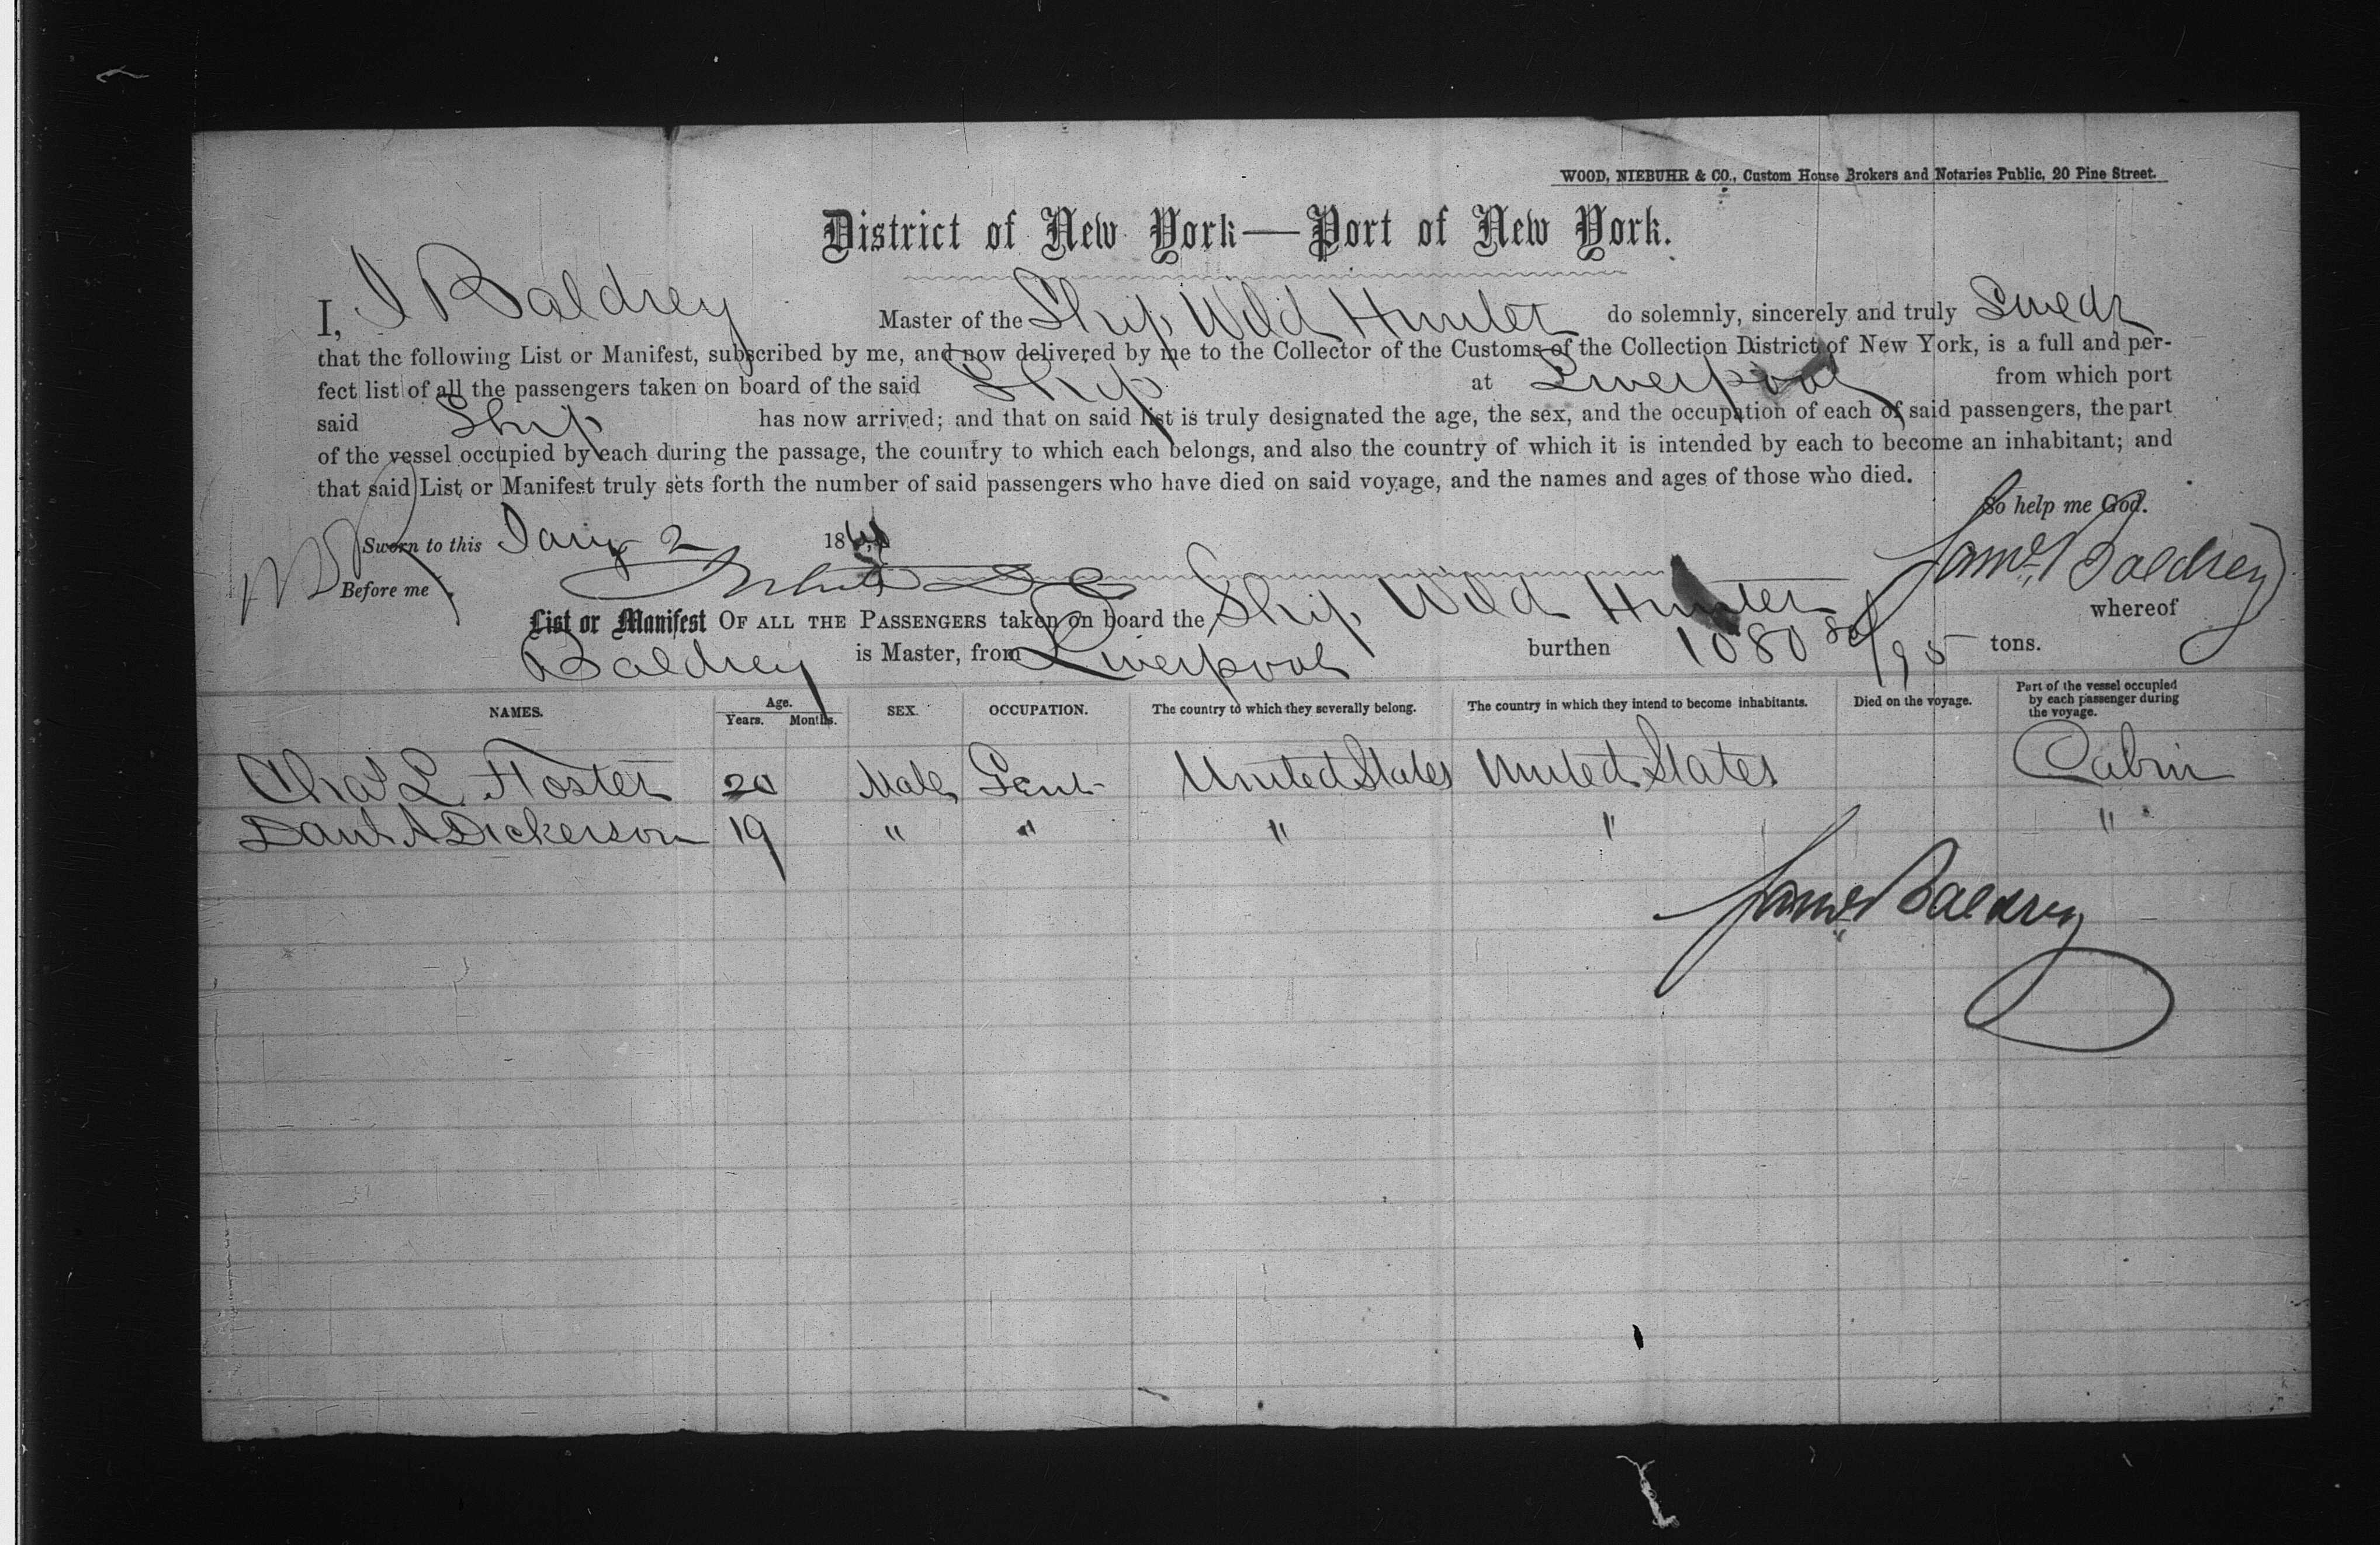 WOOD, NIEBUHR & CO., Custom House Brokers and Notaries Public, 20 Pine Street.
District of New York—Port of New York.
I, J Baldrey Master of the Ship Wild Hunter do solemnly, sincerely and truly Swear
that the following List or Manifest, subscribed by me, and now delivered by me to the Collector of the Customs of the Collection District of New York, is a full and per-
fect list of all the passengers taken on board of the said Ship at Liverpool from which port
said Ship has now arrived; and that on said list is truly designated the age, the sex, and the occupation of each of said passengers, the part
of the vessel occupied by each during the passage, the country to which each belongs, and also the country of which it is intended by each to become an inhabitant; and
that said List or Manifest truly sets forth the number of said passengers who have died on said voyage, and the names and ages of those who died.
So help me God.
Sworn to this Jany 2 18
James Baldrey
Before me
List or Manifest OF ALL THE PASSENGERS taken on board the Ship Wild Hunter whereof
Baldrey is Master, from Liverpool burthen 1080 /95 tons.
NAMES. Age. Years. Months. SEX. OCCUPATION. The country to which they severally belong. The country in which they intend to become inhabitants. Died on the voyage. Part of the vessel occupied by each passenger during the voyage.
Chas L Foster 20 Male Gent United States United States Cabin
Danl A Dickerson 19 " " " " "
James Baldrey